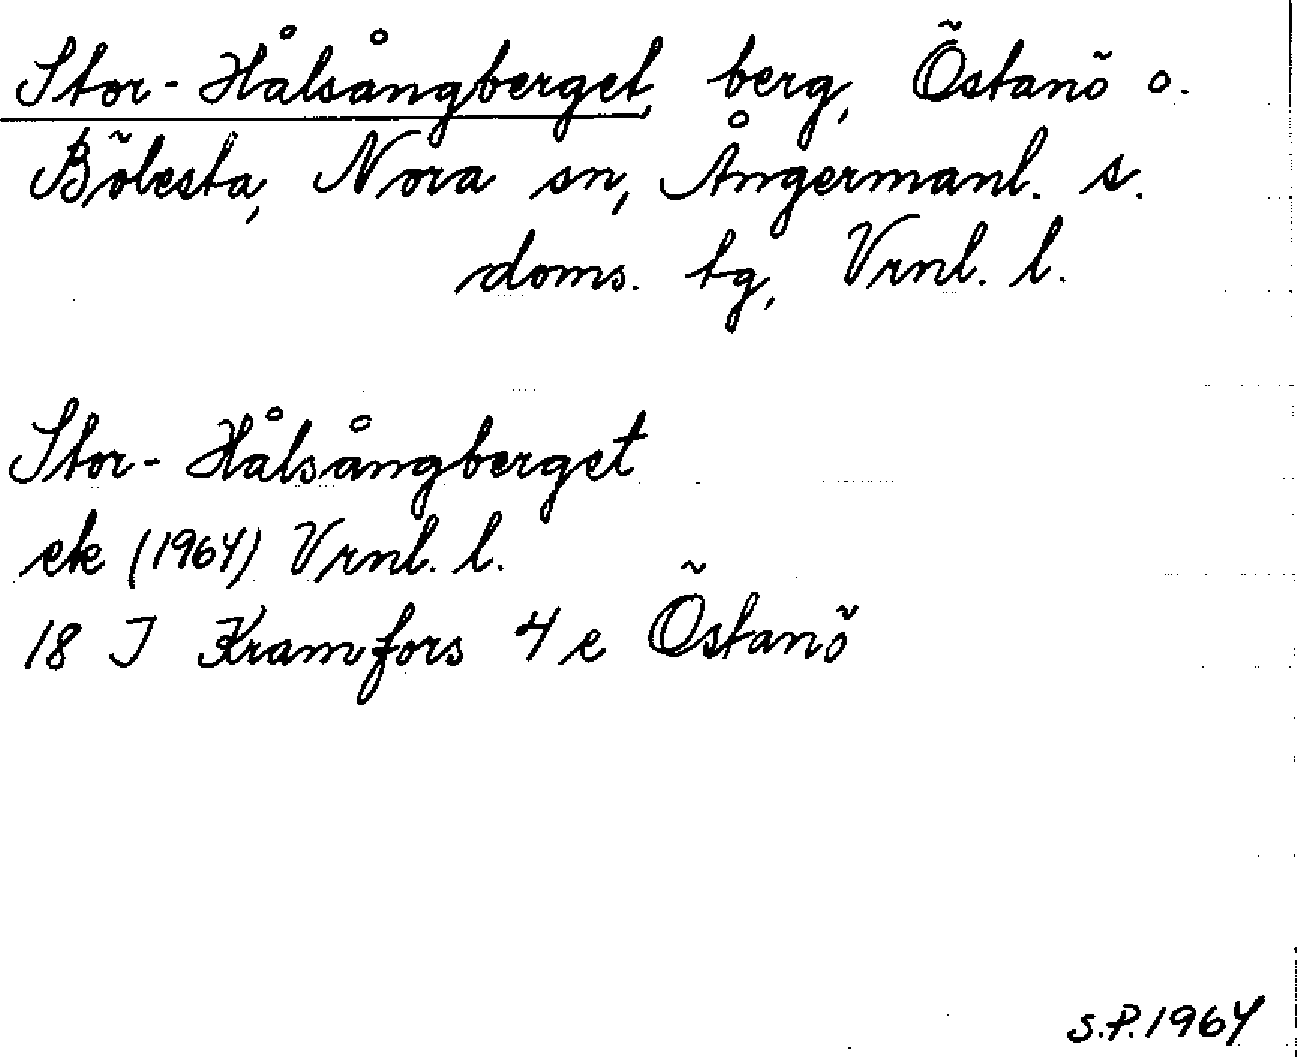 Stor-Hålsångberget, berg, Östanö o.
Bölesta, Nora sn, Ångermanl. s.
doms. tg, Vrnl. l.
Stor-Hålsångberget
ek (1964) Vrnl. l.
18 I Kramfors 4 e Östanö
S.P. 1964